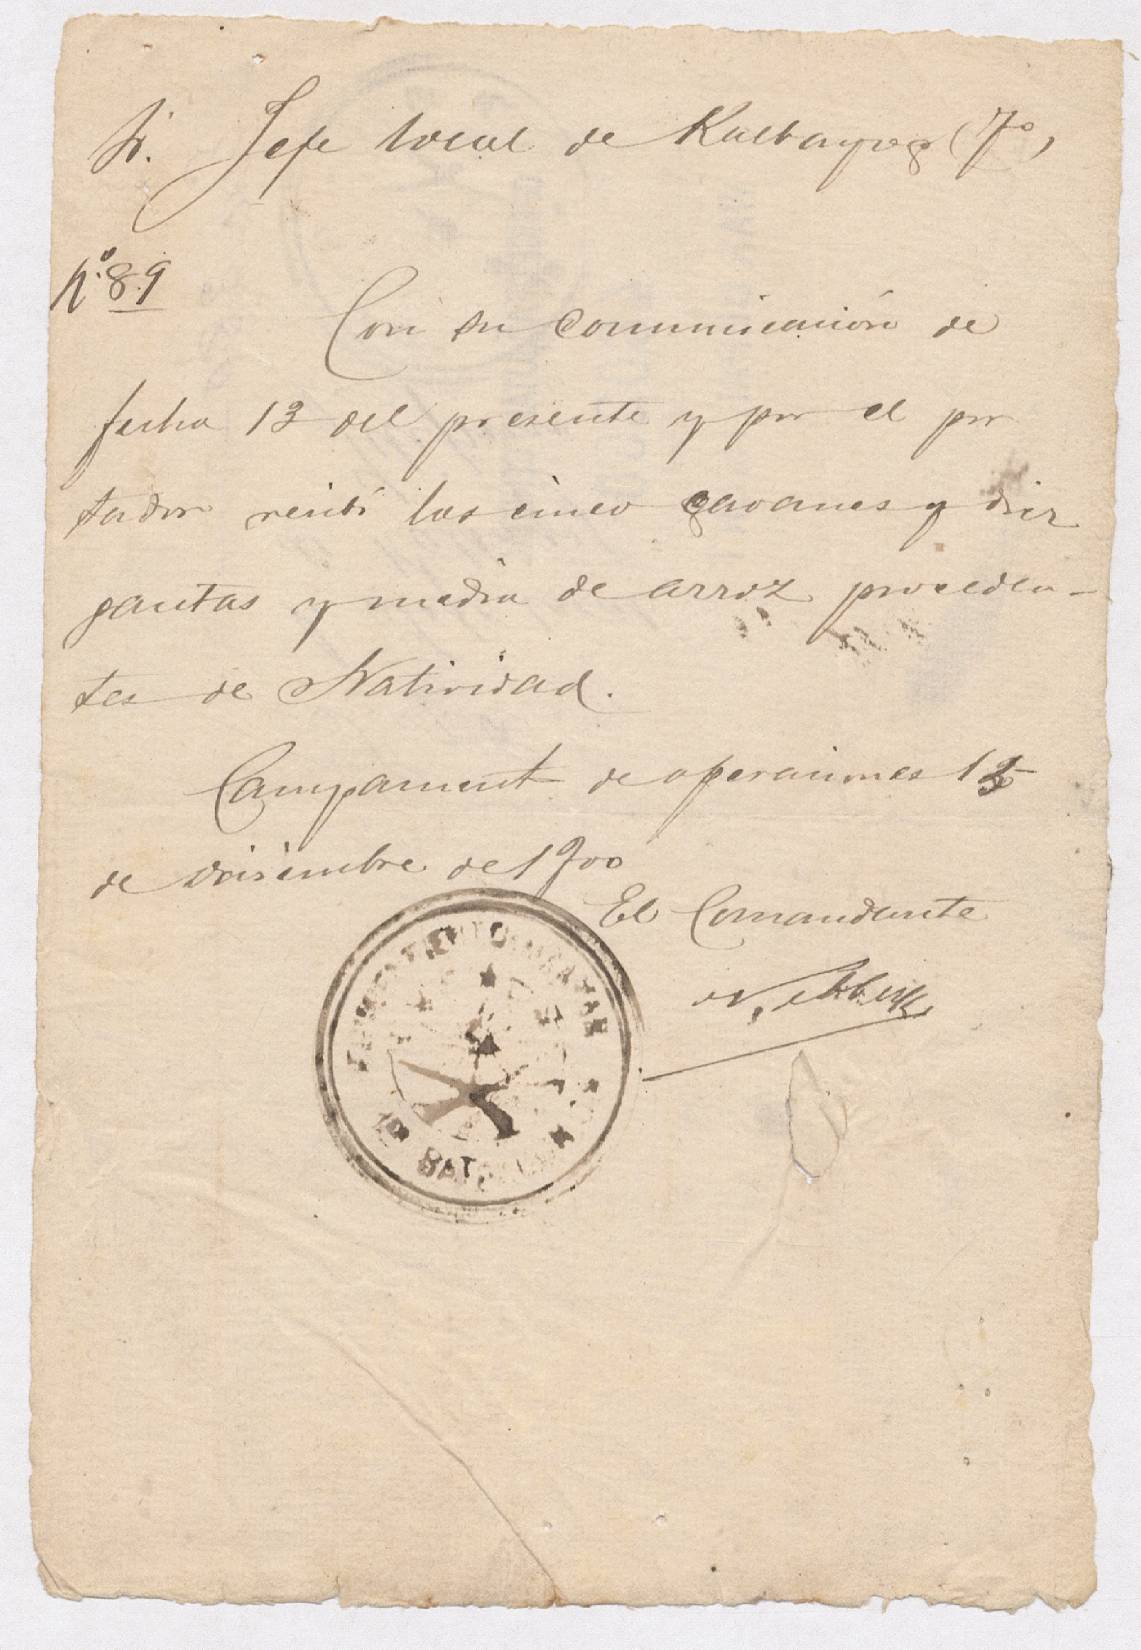 Sr. Jefe local de Kalbayog (7º)
Nº. 89
Con su comunicación de
fecha 13 del presente y por el por
tador recibí los cinco cavanes y diez
gantas y media de arroz proceden-
tes de Natividad.
Campament de operaciones 15
de diciembre de 1900
El Comandante
BATALLON